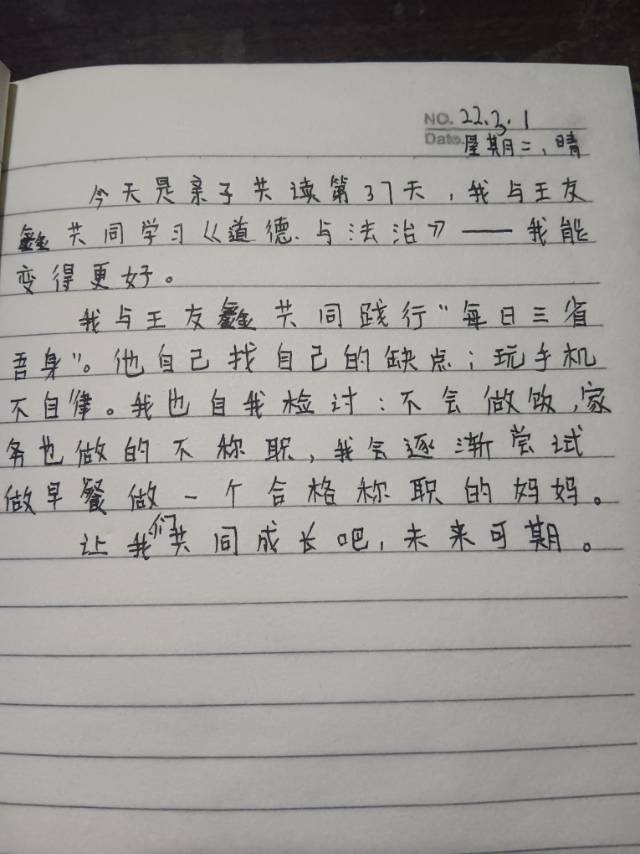 NO. 22.3.1
Date. 星期二，晴
今天是亲子共读第37天，我与王友
鑫共同学习《道德与法治》——我能
变得更好。
我与王友鑫共同践行“每日三省
吾身”。他自己找自己的缺点；玩手机
不自律。我也自我检讨：不会做饭，家
务也做的不称职，我会逐渐尝试
做早餐做一个合格称职的妈妈。
让我们共同成长吧，未来可期。